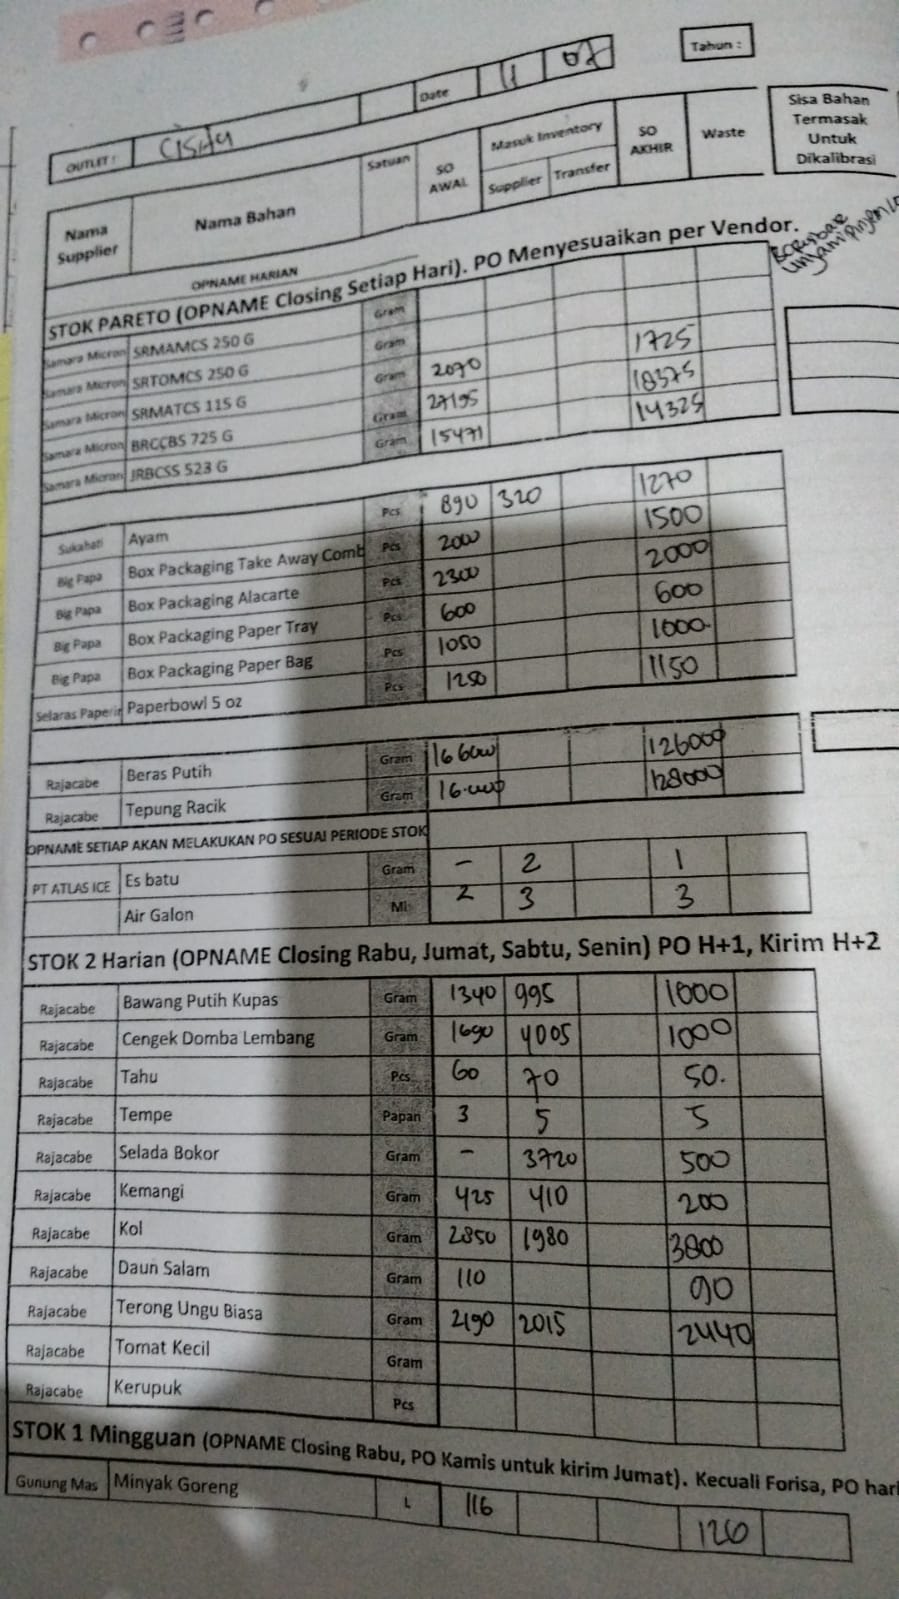 Tahun :
OUTLET : Date 11
Nama Supplier Nama Bahan Satuan SO AWAL Masuk Inventory Supplier Transfer SO AKHIR Waste Sisa Bahan Termasak Untuk Dikalibrasi
OPNAME HARIAN
STOK PARETO (OPNAME Closing Setiap Hari). PO Menyesuaikan per Vendor.
Samara Micron SRMAMCS 250 G Gram
Samara Micron SRTOMCS 250 G Gram
Samara Micron SRMATCS 115 G Gram 2070 1725
Samara Micron BRCCBS 725 G Gram 27195 18375
Samara Micron JRBCSS 523 G Gram 15471 14325
Sukahati Ayam Pcs 890 320 1270
Big Papa Box Packaging Take Away Comb Pcs 2000 1500
Big Papa Box Packaging Alacarte Pcs 2300 2000
Big Papa Box Packaging Paper Tray Pcs 600 600
Big Papa Box Packaging Paper Bag Pcs 1050 1000
Selaras Paperin Paperbowl 5 oz Pcs 1250 1150
Rajacabe Beras Putih Gram 126000
Rajacabe Tepung Racik Gram 128000
OPNAME SETIAP AKAN MELAKUKAN PO SESUAI PERIODE STOK
PT ATLAS ICE Es batu Gram - 2 1
Air Galon Ml 2 3 3
STOK 2 Harian (OPNAME Closing Rabu, Jumat, Sabtu, Senin) PO H+1, Kirim H+2
Rajacabe Bawang Putih Kupas Gram 1340 995 1000
Rajacabe Cengek Domba Lembang Gram 1690 4005 1000
Rajacabe Tahu Pcs 60 70 50.
Rajacabe Tempe Papan 3 5 5
Rajacabe Selada Bokor Gram - 3720 500
Rajacabe Kemangi Gram 425 410 200
Rajacabe Kol Gram 2850 1980 3800
Rajacabe Daun Salam Gram 110 90
Rajacabe Terong Ungu Biasa Gram 2190 2015 2440
Rajacabe Tomat Kecil Gram
Rajacabe Kerupuk Pcs
STOK 1 Mingguan (OPNAME Closing Rabu, PO Kamis untuk kirim Jumat). Kecuali Forisa, PO hari
Gunung Mas Minyak Goreng L 116 126